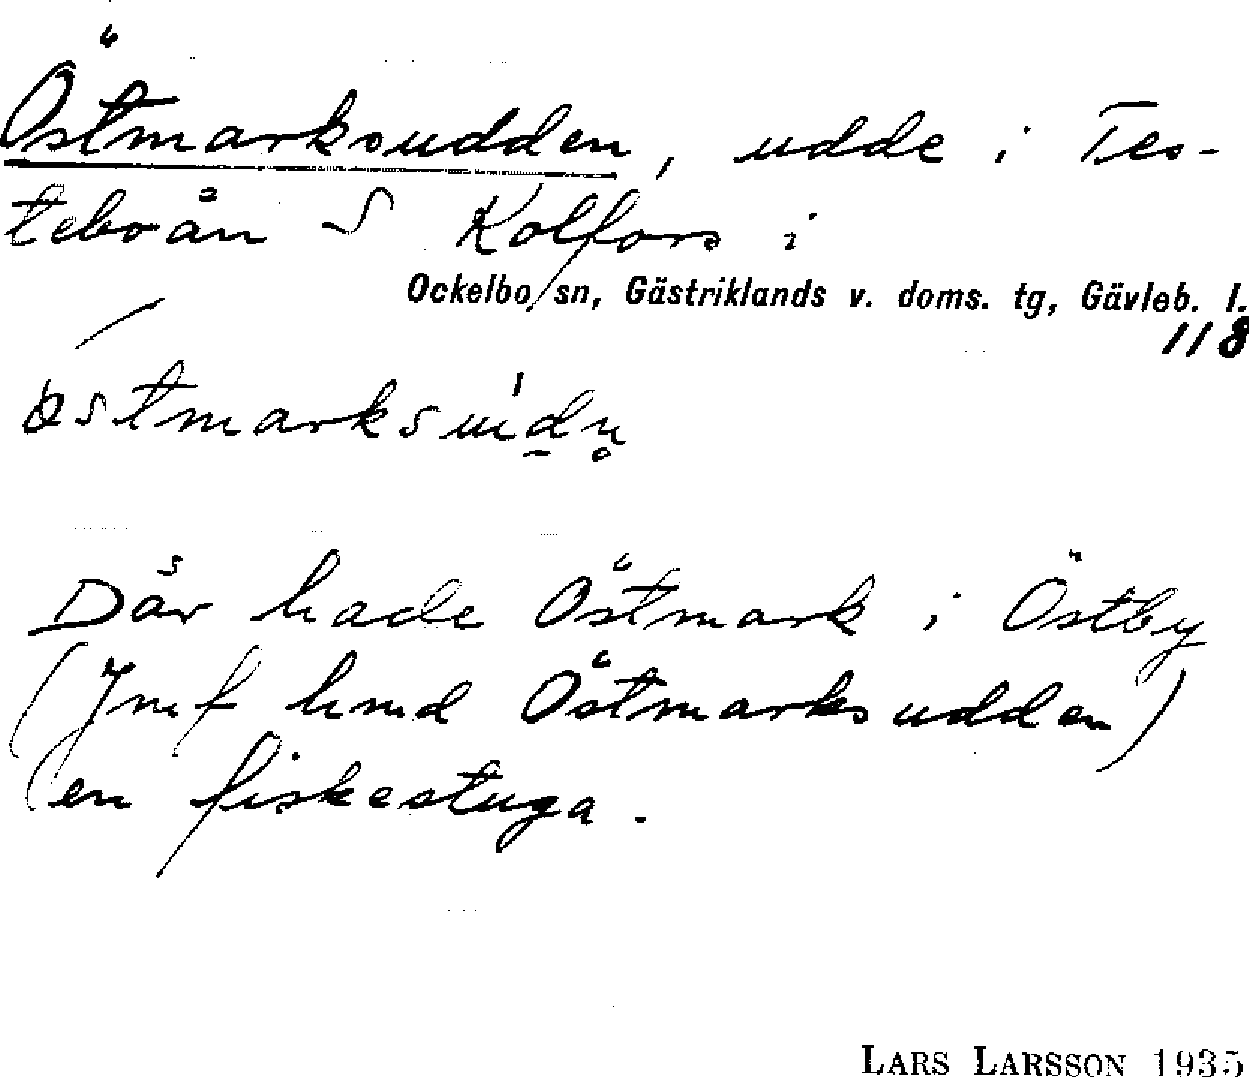 Östmarksudden, udde i Tes-
teboån S Kolfors i
Ockelbo sn, Gästriklands v. doms. tg, Gävleb. l.
118
Där hade Östmark i Östby
(Jmf hmd Östmarksudden)
en fiskestuga.
LARS LARSSON 1935